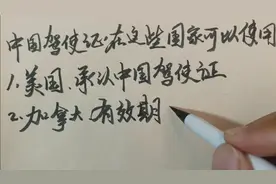 中国驾使证:在这些国家可以使用
1.美国、承认中国驾使证
2.加拿大 有效期